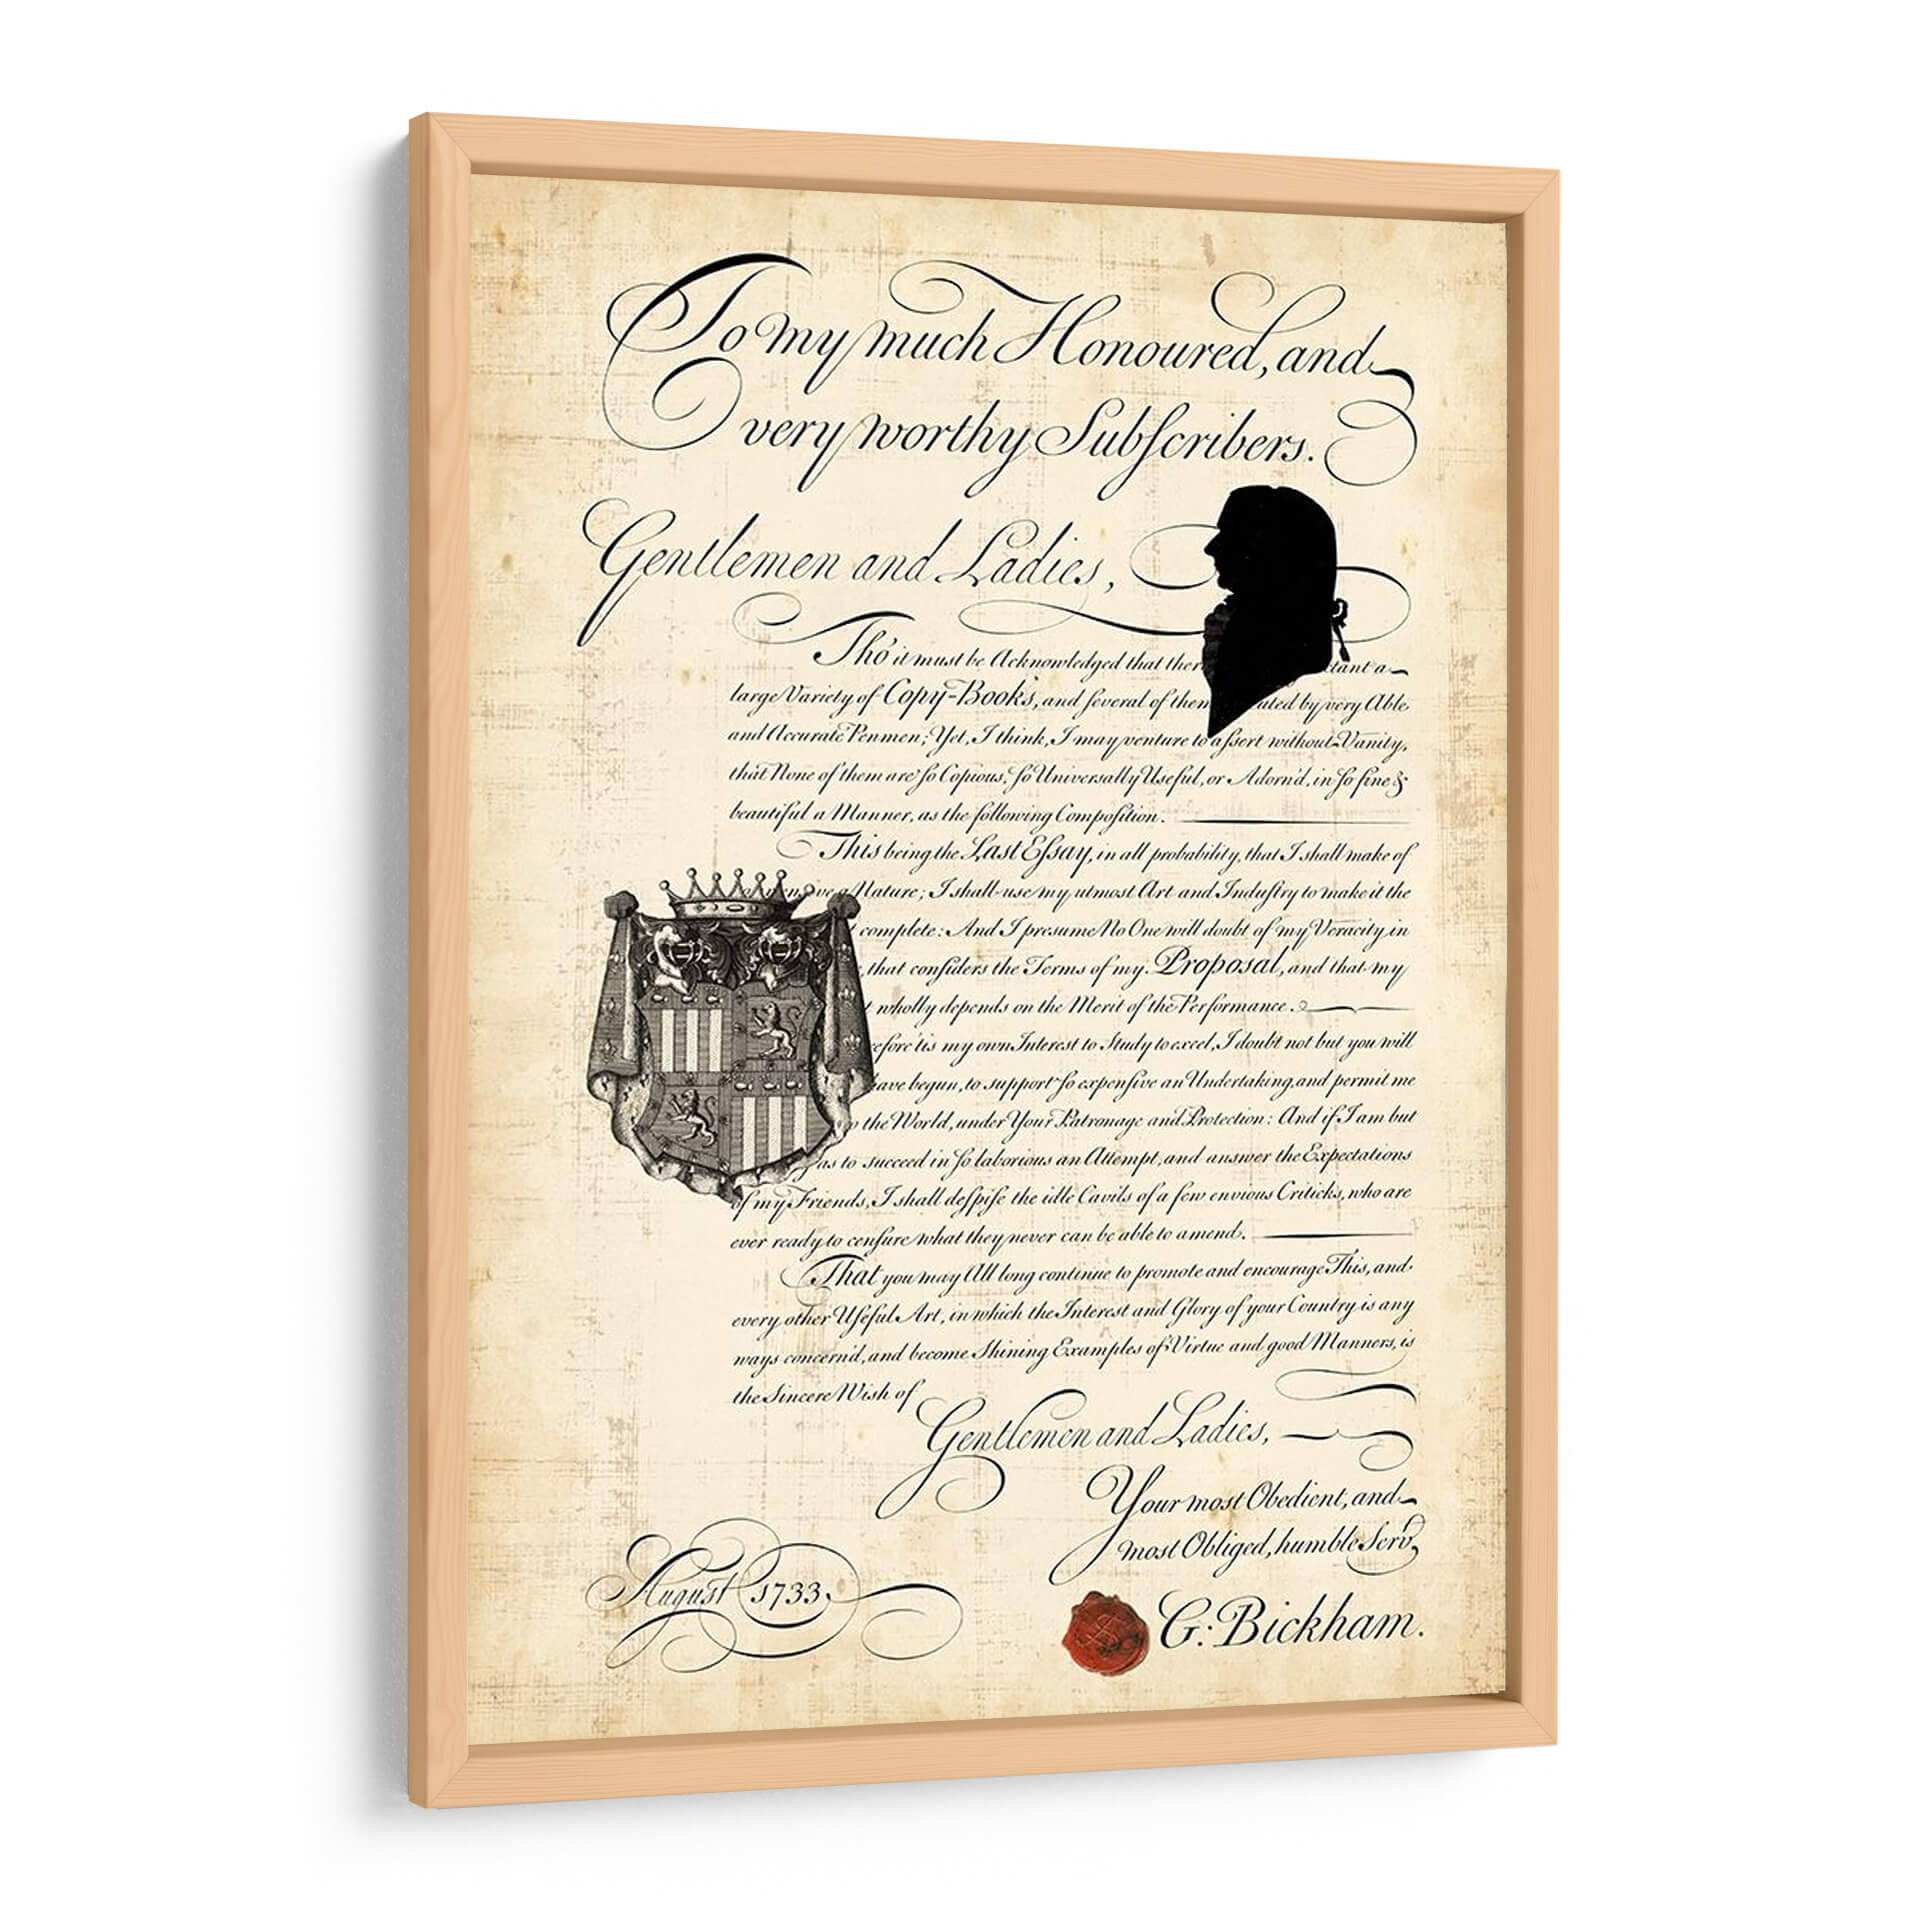 To my much Honoured, and
very worthy Subſcribers.
Gentlemen and Ladies,
Tho' it must be Acknowledged that ther tant a
large Variety of Copy-Books, and ſeveral of them ated by very Able
and Accurate Penmen; Yet, I think, I may venture to aſsert without Vanity,
that None of them are ſo Copious, ſo Universally Useful, or Adorn'd, in ſo fine &
beautiful a Manner, as the following Compoſition.
This being the Last Eſsay, in all probability, that I shall make of
a Nature; I shall use my utmost Art and Induſtry to make it the
complete: And I presume No One will doubt of my Veracity in
, that conſiders the Terms of my Proposal, and that my
wholly depends on the Merit of the Performance.
efore 'tis my own Interest to Study to excel, I doubt not but you will
have begun, to support ſo expenſive an Undertaking, and permit me
the World, under Your Patronage and Protection: And if I am but
as to succeed in ſo laborious an Attempt, and answer the Expectations
of my Friends, I shall deſpiſe the idle Cavils of a few envious Criticks, who are
ever ready to cenſure what they never can be able to amend.
That you may All long continue to promote and encourage This, and
every other Uſeful Art, in which the Interest and Glory of your Country is any
ways concern'd, and become Shining Examples of Virtue and good Manners, is
the Sincere Wish of
Gentlemen and Ladies,
Your most Obedient, and
most Obliged, humble Serv.
August 1733.
G: Bickham.